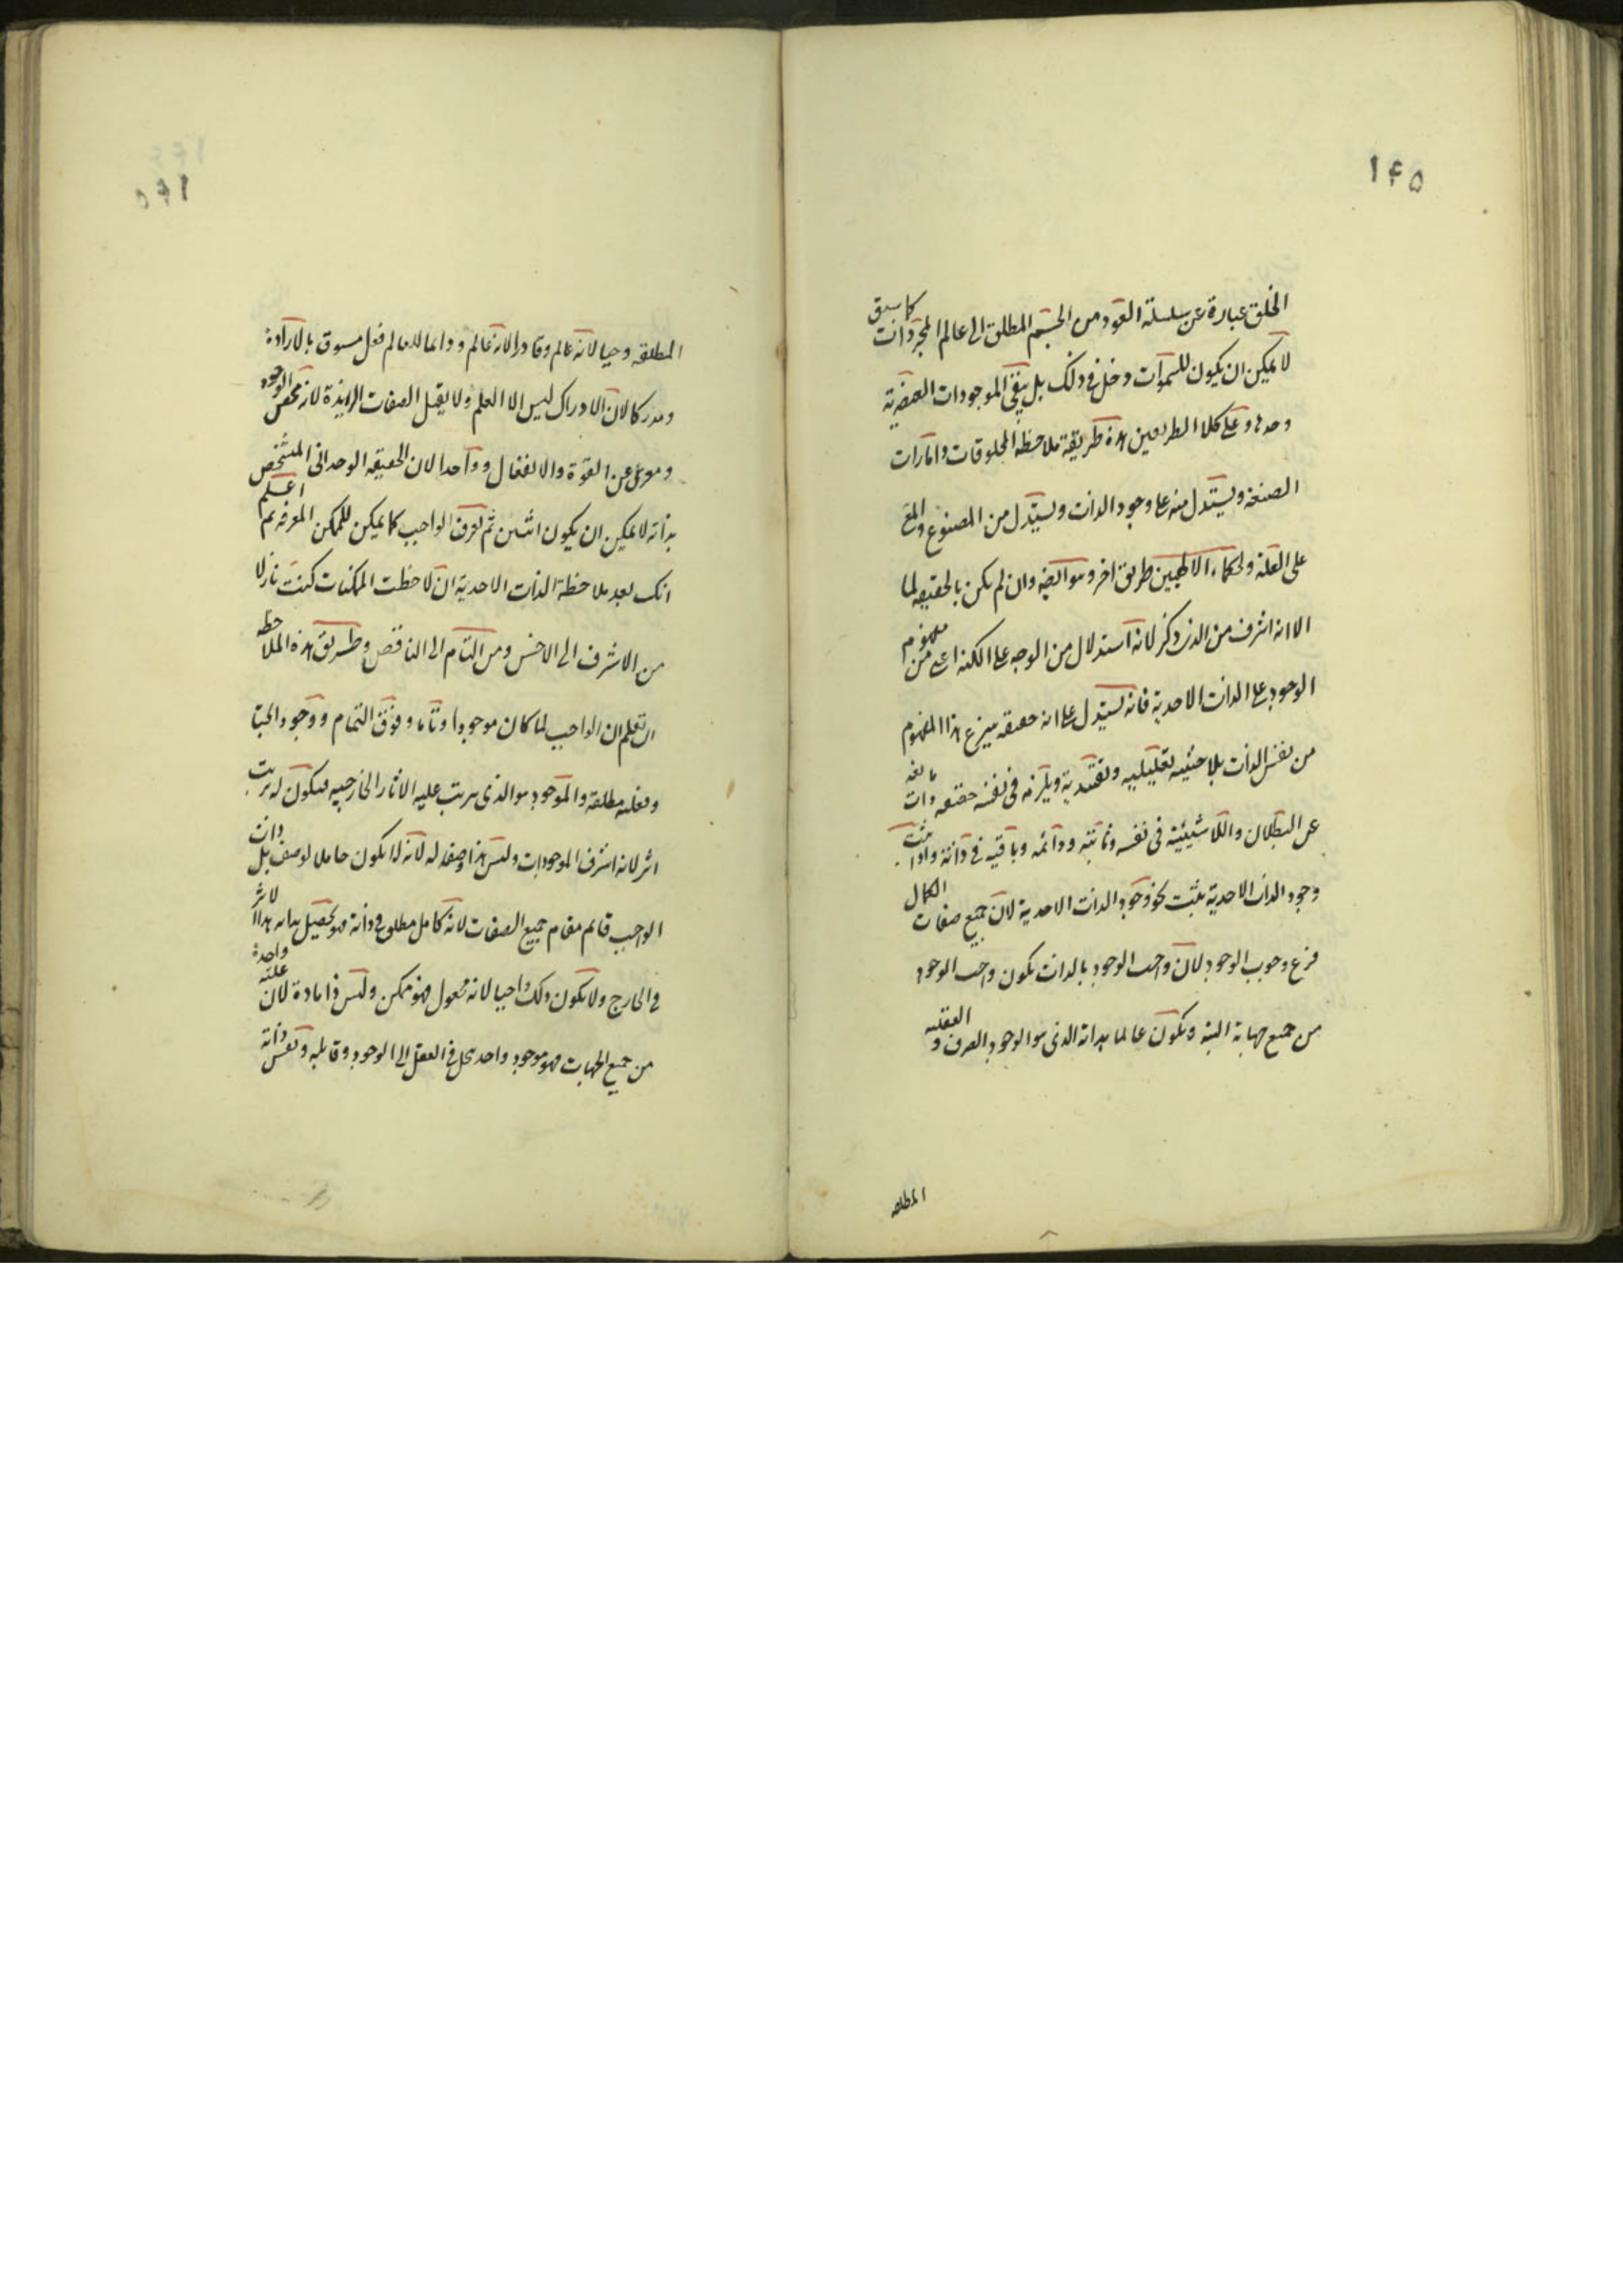 ١٤٥
الخلق عبارة عن سلسلة العود من الجسم المطلق الى عالم المجردات كما سبق
لا يمكن ان يكون للسموات دخل فى ذلك بل يبقى الموجودات العنصرية
وحدها وعلى كلا الطريقين هذه طريقة ملاحظة المخلوقات وامارات
الصنعة ويستدل منه على وجود الذات ويستدل من المصنوع
على العلة ولحكماء الالهيين طريق اخر وهو انه وان لم يكن بالحقيقة لما
الا انه اشرف من الذى ذكر لانه استدلال من الوجه على الكنه اعنى من مفهوم
الوجود على الذات الاحدية فانه يستدل على انه حقيقة ينتزع هذا المفهوم
من نفس الذات بلا حيثية تعليلية وتقييدية ويلزمه فى نفسه حقيقة ذات مانعة
عن البطلان واللاشيئية فى نفسه وثابتة ودائمة وباقية فى ذاته واذا يثبت
وجود الذات الاحدية يثبت نحو وجود الذات الاحدية لان جميع صفات الكمال
فرع وجوب الوجود لان واجب الوجود بالذات يكون واجب الوجود
من جميع جهاته البتة ويكون عالما بذاته الذى هو الوجود الصرف و الفعلية
المطلقة
المطلقة وحيا لانه عالم وقادرا لانه عالم ودائما للعالم فعل مسبوق بالارادة
ومدركا لان الادراك ليس الا العلم ولا يقبل الصفات الزايدة لانه محض الوجود
ومعرى عن القوة والانفعال وواحدا لان الحقيقة الوحدانى المتشخص
بذاته لا يمكن ان يكون اثنين ثم تعرف الواجب كما يمكن للممكن المعرفة ثم اعلم
انك بعد ملاحظة الذات الاحدية ان لاحظت الممكنات كنت نازلا
من الاشرف الى الاخس ومن التام الى الناقص وطريق هذه الملاحظة
ان تعلم ان الواجب لما كان موجودا وتاما وفوق التمام ووجود
وفعلية مطلقة والموجود هو الذى يترتب عليه الاثار الخارجية فيكون له يترتب
اثر لانه اشرف الموجودات وليس هذا وصفا له لانه لا يكون حاملا لوصف بل ذات
الواجب قائم مقام جميع الصفات لانه كامل مطلق فى ذاته فهو يحصل بذاته هذا الاثر
فى الخارج ولا يكون ذلك واجبا لانه مجعول فهو ممكن وليس ذا مادة لان علته واحدة
من جميع الجهات فهو موجود واحد يحل فى العقل الى الوجود وقابلية ونفس ذاته